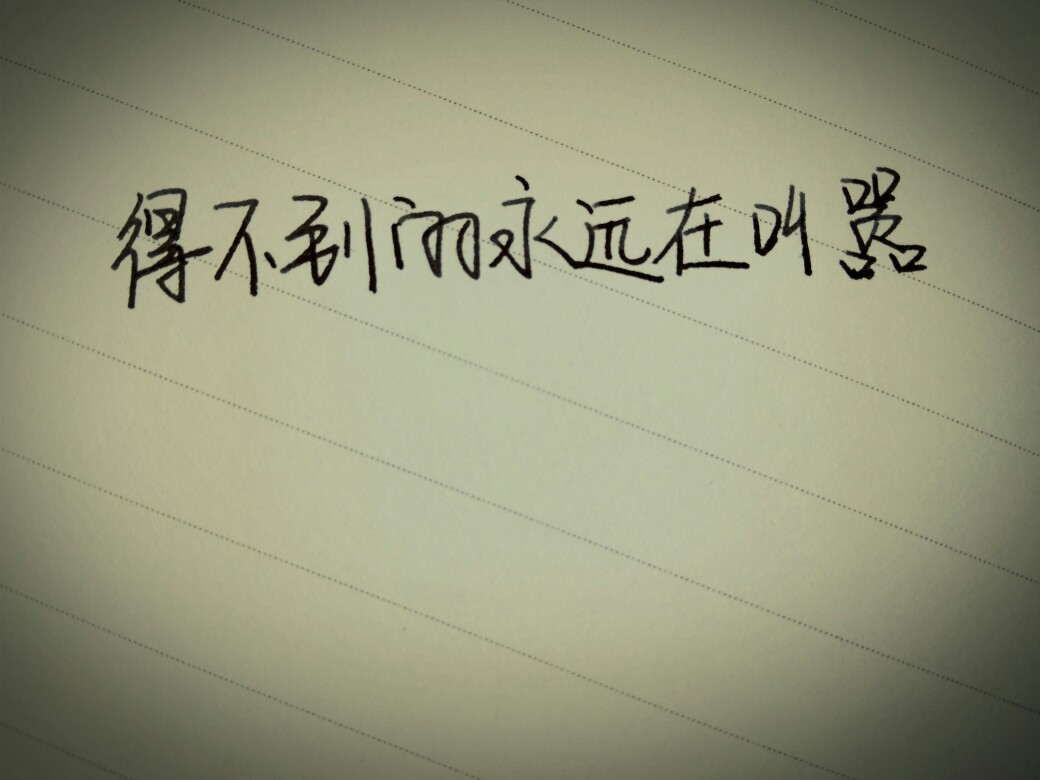 得不到的永远在叫嚣